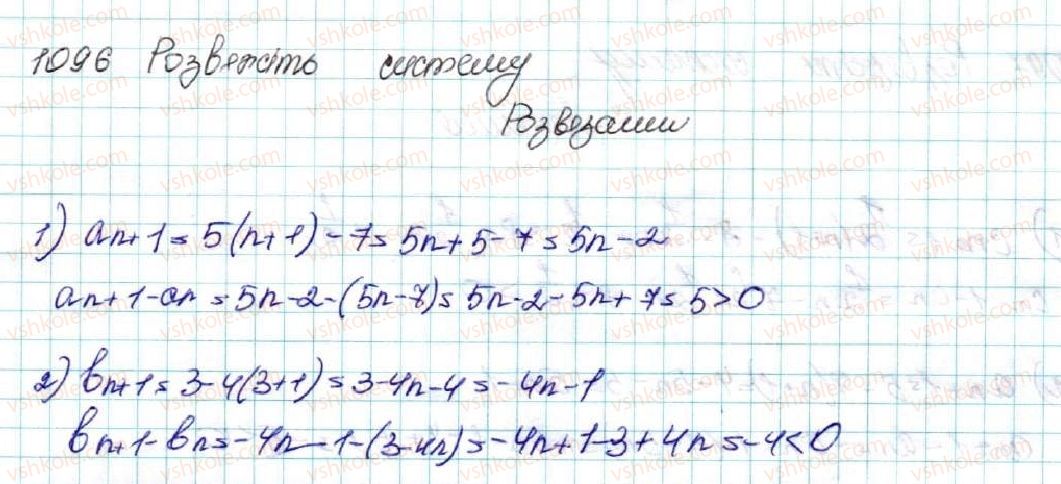 1096 Розвязать систему
Розвезании
1) an+1 = 5(n+1)-7 = 5n+5-7 = 5n-2
an+1-an = 5n-2-(5n-7) = 5n-2-5n+7 = 5>0
2) bn+1 = 3-4(3+1) = 3-4n-4 = -4n-1
bn+1-bn = -4n-1-(3-4n) = -4n+1-3+4n = -4<0